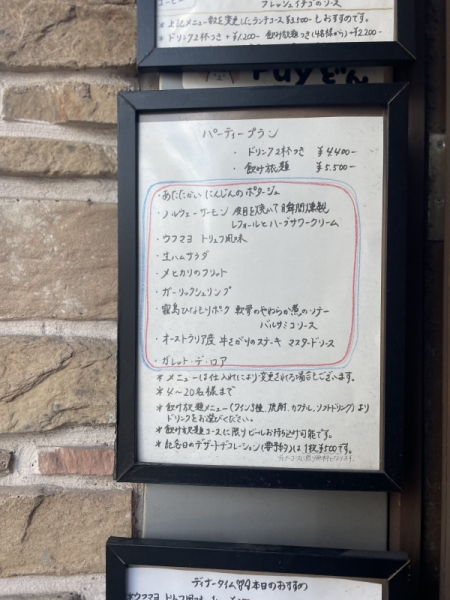 フレッシュイチゴのソース
*上記メニュー数を変更したランチコース¥2,500-もおすすめです。
*ドリンク2杯つき +¥1,200- 飲み放題つき(4名様から)+¥2,200-
パーティープラン
・ドリンク2杯つき ¥4,400-
・飲み放題 ¥5,500-
・あたたかい にんじんのポタージュ
・ノルウェーサーモン 皮目を焼いて瞬間燻製
レフォールとハーブサワークリーム
・ウフマヨ トリュフ風味
・生ハムサラダ
・メヒカリのフリット
・ガーリックシュリンプ
・霧島ひなもりポーク 軟骨のやわらか煮のソテー
バルサミコソース
・オーストラリア産 牛さがりのステーキ マスタードソース
・ガレット・デ・ロア
*メニューは仕入れにより変更される場合もございます。
*4~20名様まで
*飲み放題メニュー(ワイン5種、焼酎、カクテル、ソフトドリンク)より
ドリンクをお選びください。
*飲み放題コースに限りビールお持ち込み可能です。
*記念日のデザートデコレーション(要予約)は1枚¥500です。
ディナータイム 本日のおすすめ
ウフマヨ トリュフ風味